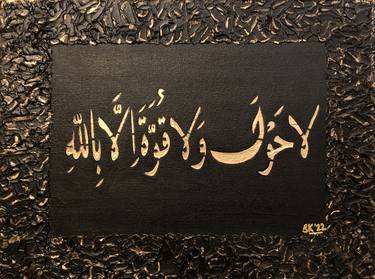 لا حَوْلَ وَلا قُوَّةَ إِلَّا بِاللَّهِ
SK'22